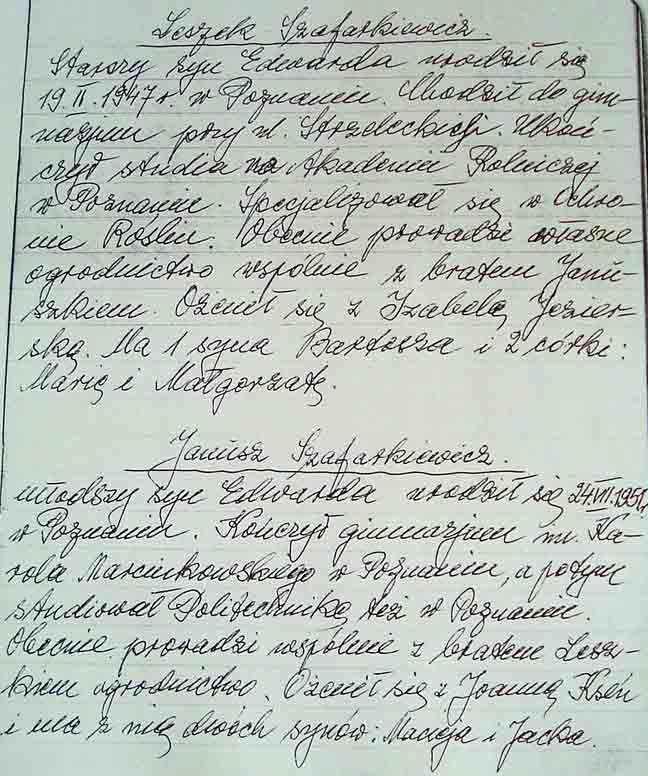 Leszek Szafarkiewicz.
Starszy syn Edwarda urodził się
19.II.1947r. w Poznaniu. Chodził do gim-
nazjum przy ul. Strzeleckiej. Ukoń-
czył studia na Akademii Rolniczej
w Poznaniu. Specjalizował się w Ochro-
nie Roślin. Obecnie prowadzi własne
ogrodnictwo wspólnie z bratem Janu-
szkiem. Ożenił się z Izabelą Jezier-
ską. Ma 1 syna Bartosza i 2 córki:
Marię i Małgorzatę.
Janusz Szafarkiewicz.
młodszy syn Edwarda urodził się 24.VII.1951r.
w Poznaniu. Kończył gimnazjum im. Ka-
rola Marcinkowskiego w Poznaniu, a potym
studiował Politechnikę też w Poznaniu.
Obecnie prowadzi wspólnie z bratem Lesz-
kiem ogrodnictwo. Ożenił się z Joanną Kseń
i ma z nią dwóch synów: Macieja i Jacka.